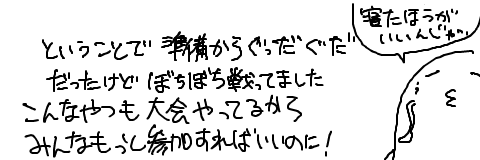 ということで 準備からぐっだぐだ
だったけど ぼちぼち戦ってました
こんなやつも 大会やってるから
みんなもっと参加すればいいのに!
寝たほうが
いいんじゃ